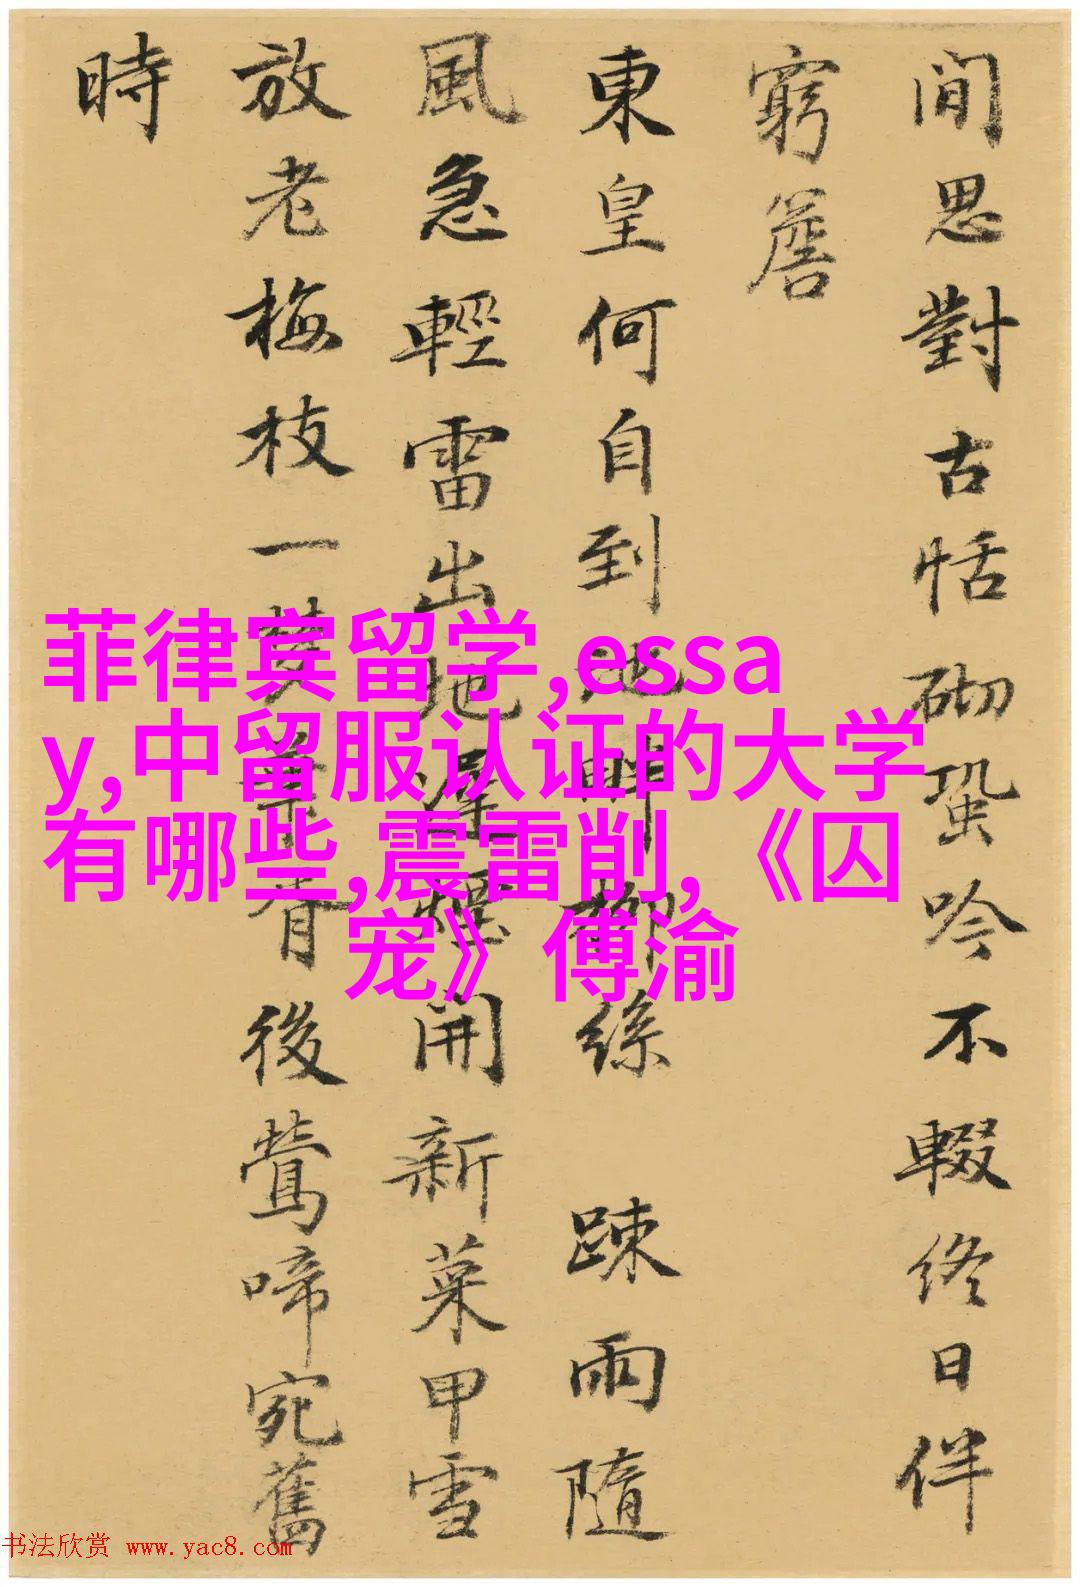 閒思對古恬砌蛩吟不輟終日伴
窮簷
東皇何自到 柳絲 踈雨隨
風急輕雷出地 煙開新菜甲雪
放老梅枝一 香後鶯啼宛舊
時
菲律宾留学,essa
y,中留服认证的大学
有哪些,震雷削,《囚
宠》傅渝
书法欣赏 www.yac8.com